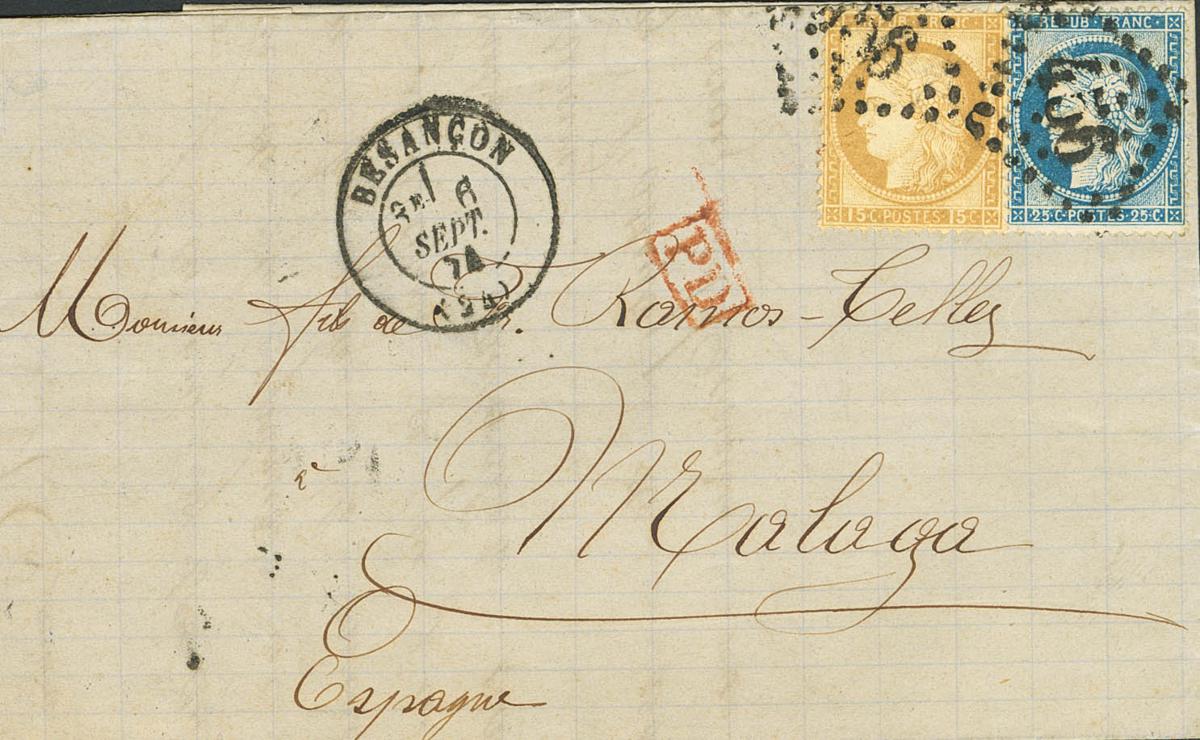 REPUB FRANC
15 C POSTES 15 C
REPUB FRANC
25 C POSTES 25 C
BESANÇON
6
SEPT.
74
(24)
PD
Messieurs fils de Ramos-Tellez
à
Malaga
Espagne